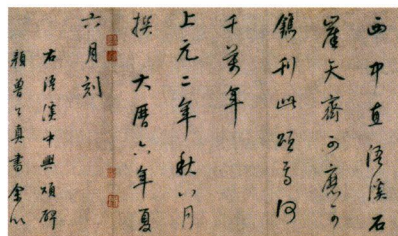 西中直浯溪石
崖天齊可磨可
鐫刊此頌焉何
千萬年
上元二年秋八月
撰 大曆六年夏
六月刻
右浯溪中興頌碑
顏魯公真書余以